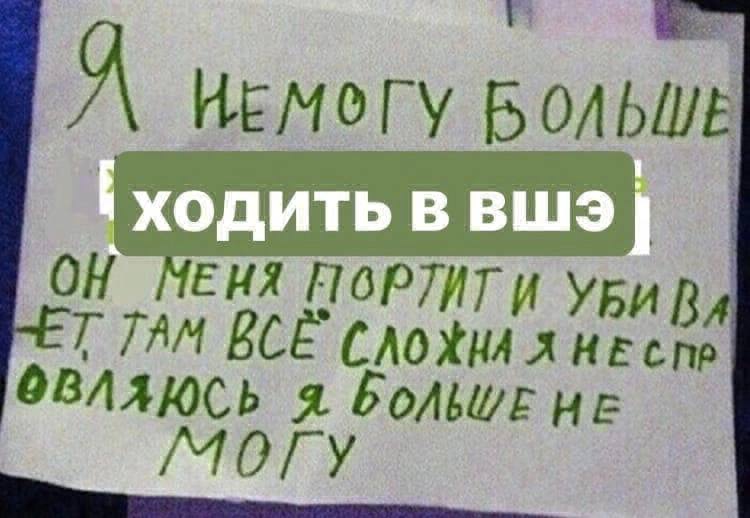 Я НЕМОГУ БОЛЬШЕ
ХОДИТЬ В ВШЭ
ОН МЕНЯ ПОРТИТ И УБИВА
ЕТ, ТАМ ВСЁ СЛОЖНА Я НЕСПР
ОВЛЯЮСЬ Я БОЛЬШЕ НЕ
МОГУ